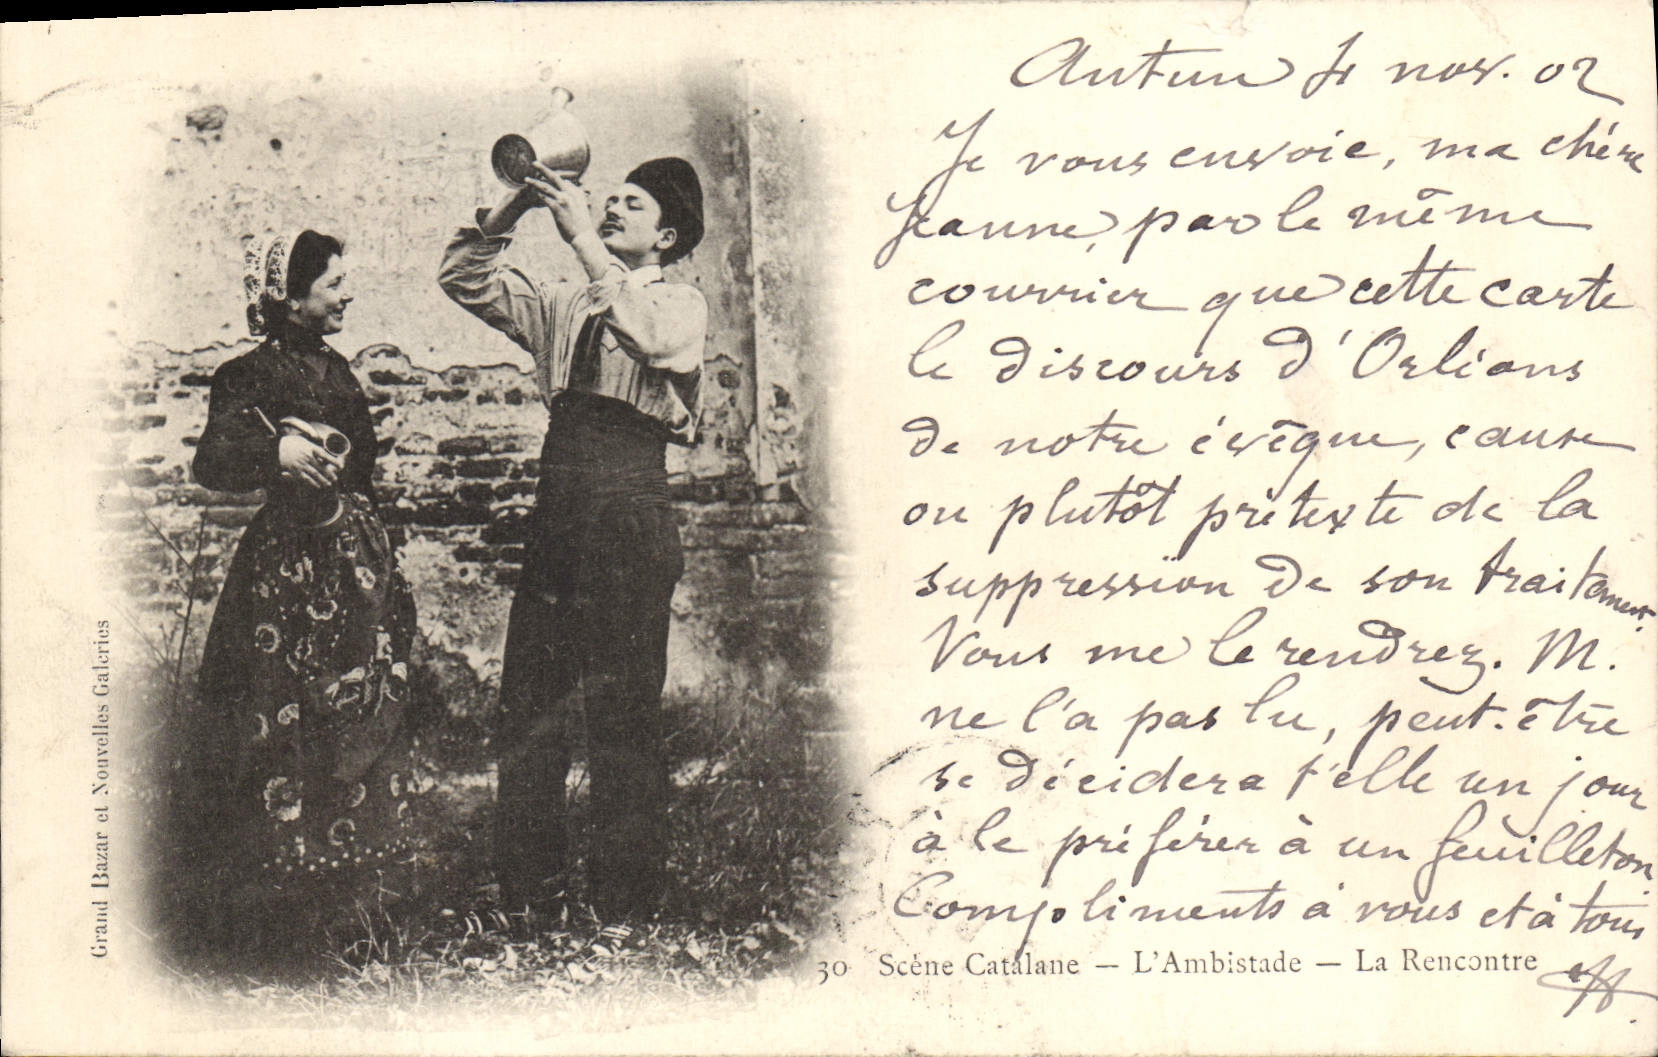 Autun 4 nov. 02
Je vous envoie, ma chère
Jeanne, par le même
courrier que cette carte
le discours d'Orléans
de notre évêque, cause
ou plutôt prétexte de la
suppression de son traitement.
Vous me le rendrez. M.
ne l'a pas lu, peut-être
se décidera t'elle un jour
à le préférer à un feuilleton
Compliments à vous et à tous
30 Scène Catalane — L'Ambistade — La Rencontre
Grand Bazar et Nouvelles Galeries